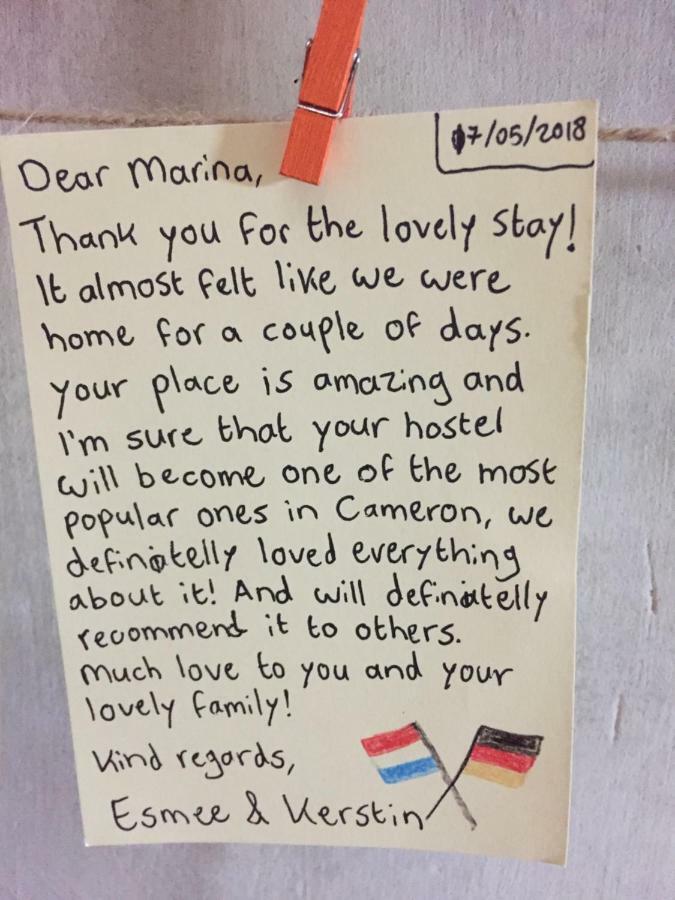 07/05/2018
Dear Marina,
Thank you for the lovely stay!
It almost felt like we were
home for a couple of days.
your place is amazing and
I'm sure that your hostel
will become one of the most
popular ones in Cameron, we
definatelly loved everything
about it! And will definatelly
recommend it to others.
Much love to you and your
lovely family!
Kind regards,
Esmee & Kerstin